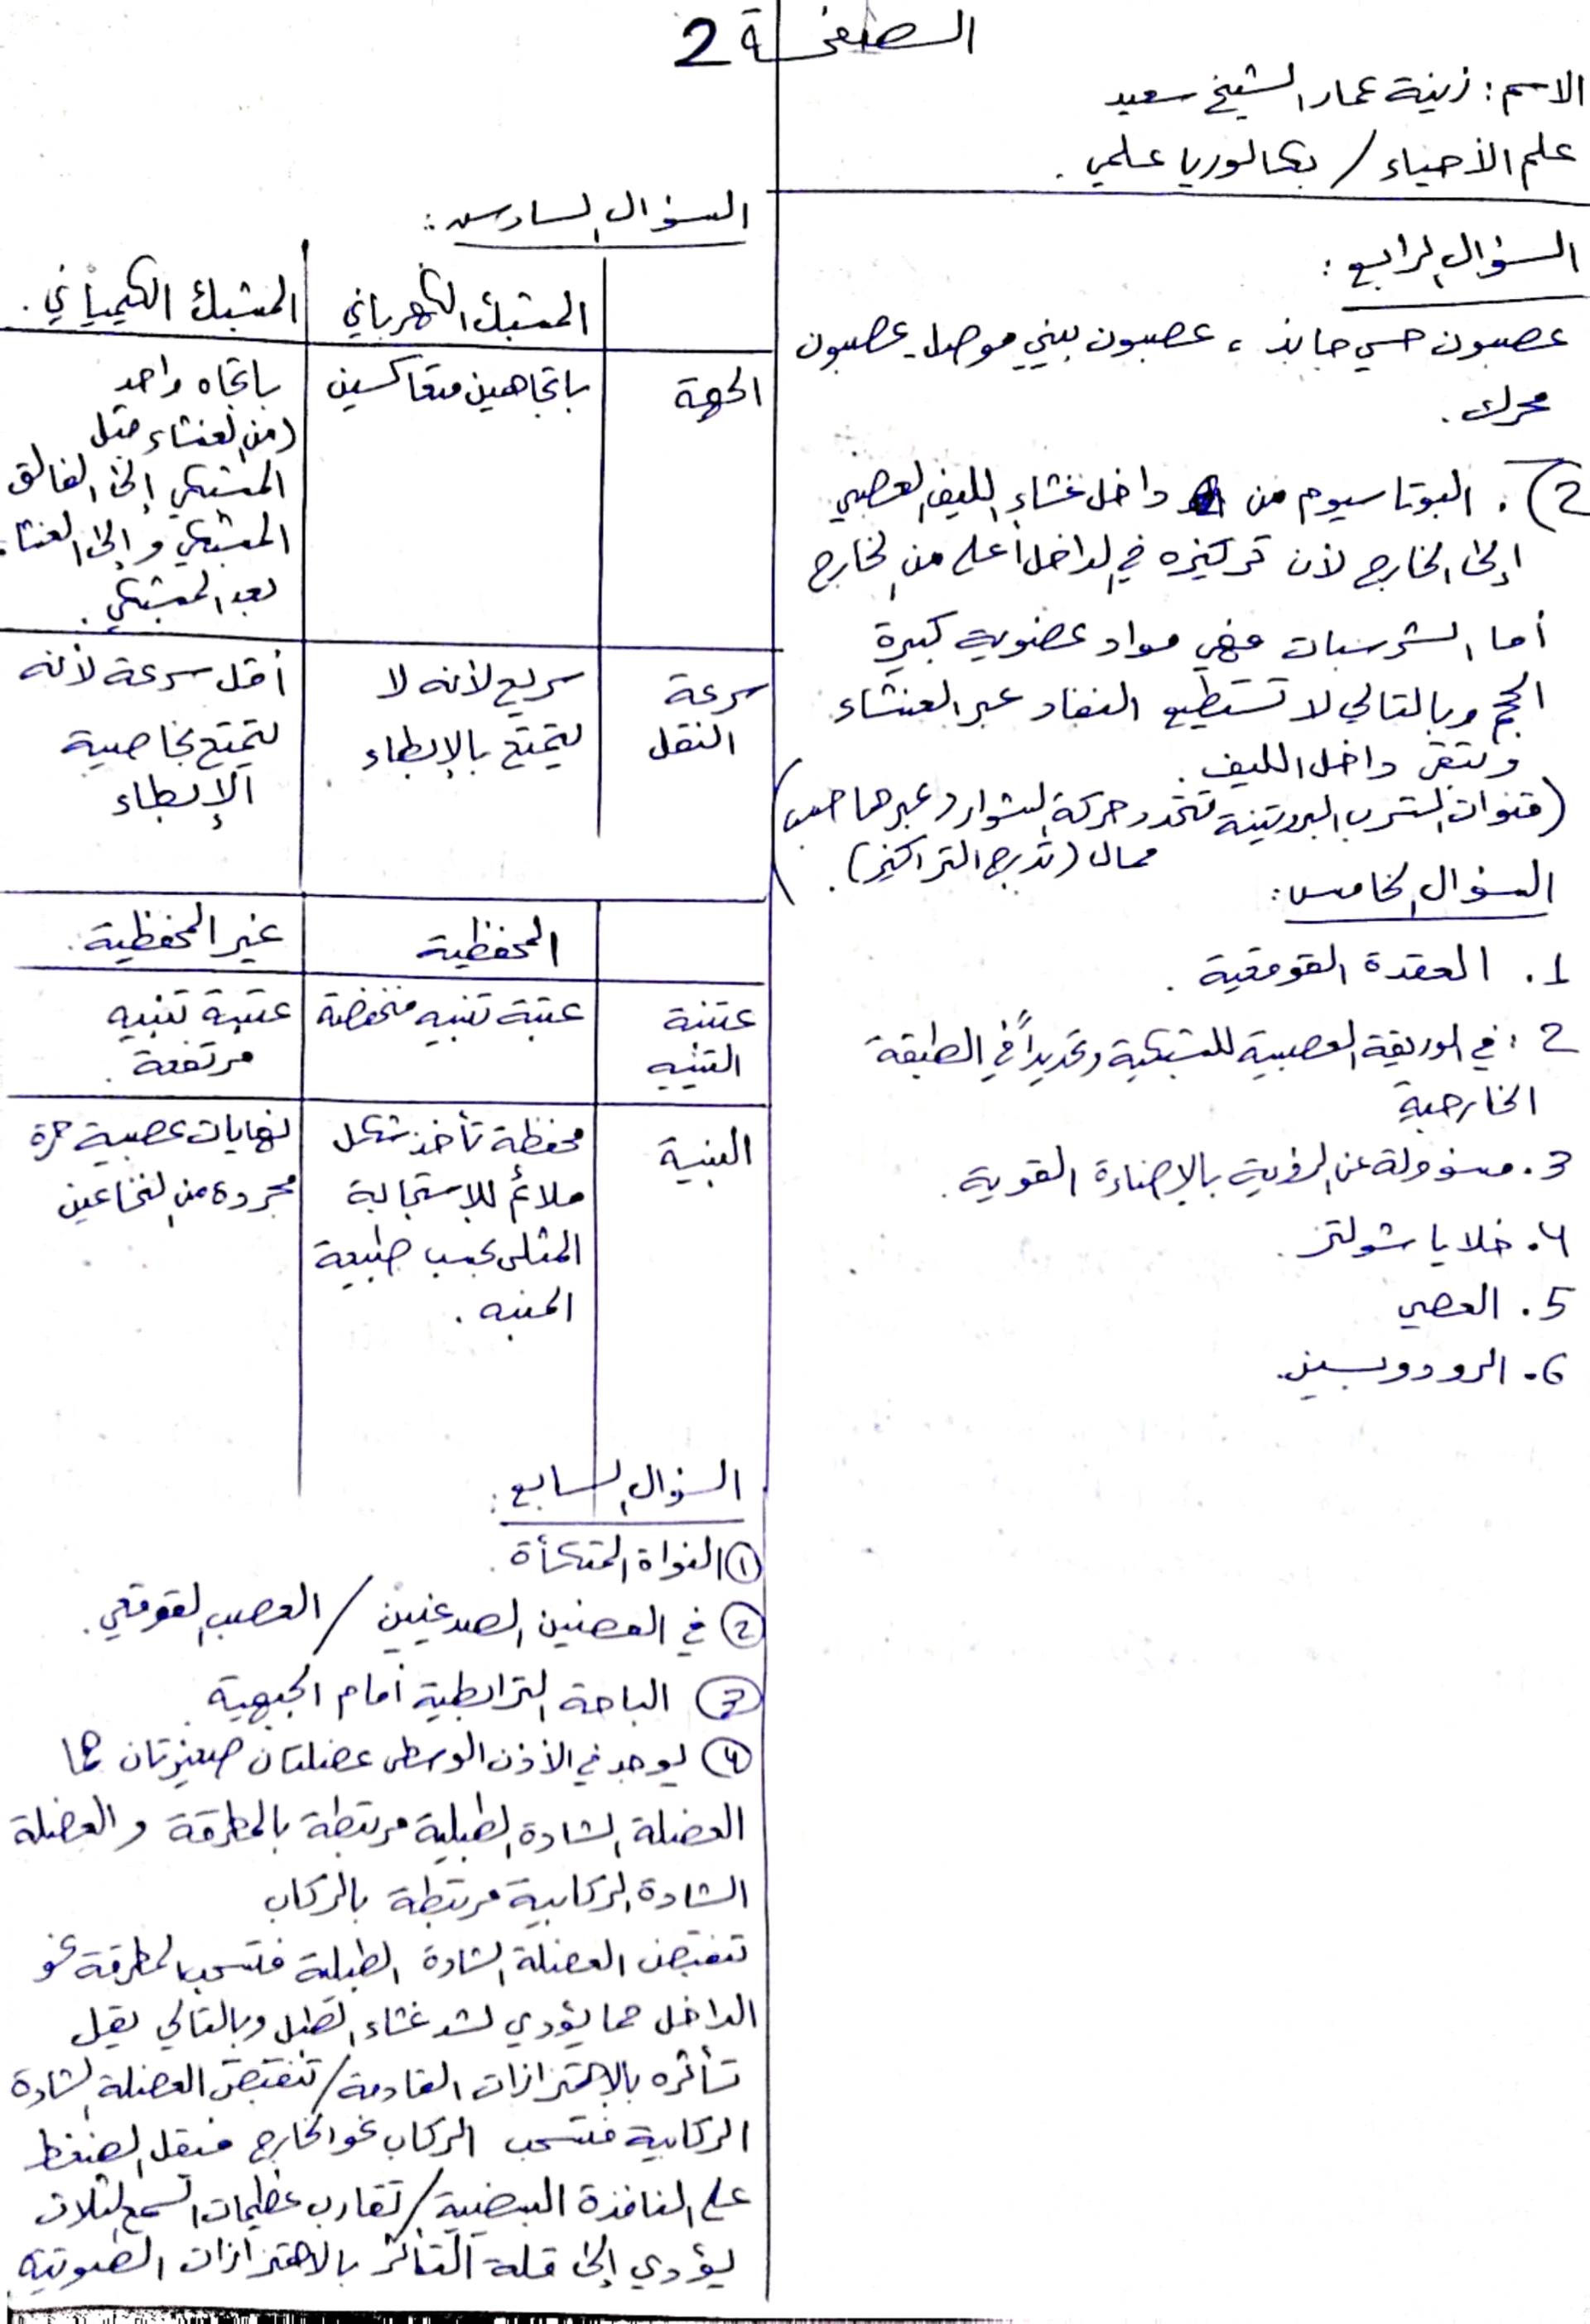 الصفحة 2
الاسم: زينة عمار الشيخ سعيد
علم الأحياء / بكالوريا علمي.
السؤال الرابع:
عصبون حسي جابذ، عصبون بيني موصل - عصبون
محرك.
2). البوتاسيوم من داخل غشاء الليف العصبي
إلى الخارج لأن تركيزه في الداخل أعلى من الخارج
أما الشرسبات فهي مواد عضوية كبيرة
الحجم وبالتالي لا تستطيع النفاد عبر الغشاء
وتبقى داخل الليف.
(قنوات التسرب البروتينة تتحدد حركة الشوارد عبرها حسب
ممال (تدرج التراكيز).
السؤال الخامس:
1. العقدة القوقعية.
2. في الوريقة العصبية للشبكية وتحديداً في الطبقة
الخارجية
3. مسؤولة عن الرؤية بالإضاءة القوية.
4. خلايا شولتز.
5. العصي
6. الرودوبسين.
السؤال السادس:
المشبك الكهربائي | المشبك الكيميائي.
الجهة | باتجاهين متعاكسين | باتجاه واحد
(من الغشاء قبل
المشبكي إلى الفالق
المشبكي وإلى الغشاء
بعد المشبكي.
سرعة | سريع لأنه لا | أقل سرعة لأنه
النقل | يتمتع بالإبطاء | يتمتع بخاصية
الإبطاء
المحفظية | غير المحفظية.
عتبة | عتبة تنبيه منخفضة | عتبة تنبيه
التنبيه | مرتفعة.
البنية | محفظة تأخذ شكل | نهايات عصبية حرة
ملائم للاستجابة | مجردة من النخاعين
المثلى بحسب طبيعة
المنبه.
السؤال السابع:
① النواة المتكأة.
② في الفصين الصدغيين / العصب القوقعي.
③ الباحة الترابطية أمام الجبهية.
④ يوجد في الأذن الوسطى عضلتان صغيرتان هما
العضلة الشادة الطبلية مرتبطة بالمطرقة والعضلة
الشادة الركابية مرتبطة بالركاب
تنقبض العضلة الشادة الطبلية فتسحب المطرقة نحو
الداخل مما يؤدي لشد غشاء الطبل وبالتالي يقل
تأثره بالاهتزازات القادمة / تنقبض العضلة الشادة
الركابية فتسحب الركاب نحو الخارج فيقل الضغط
على النافذة البيضية / تقارب عظيمات السمع الثلاث
يؤدي إلى قلة التأثر بالاهتزازات الصوتية